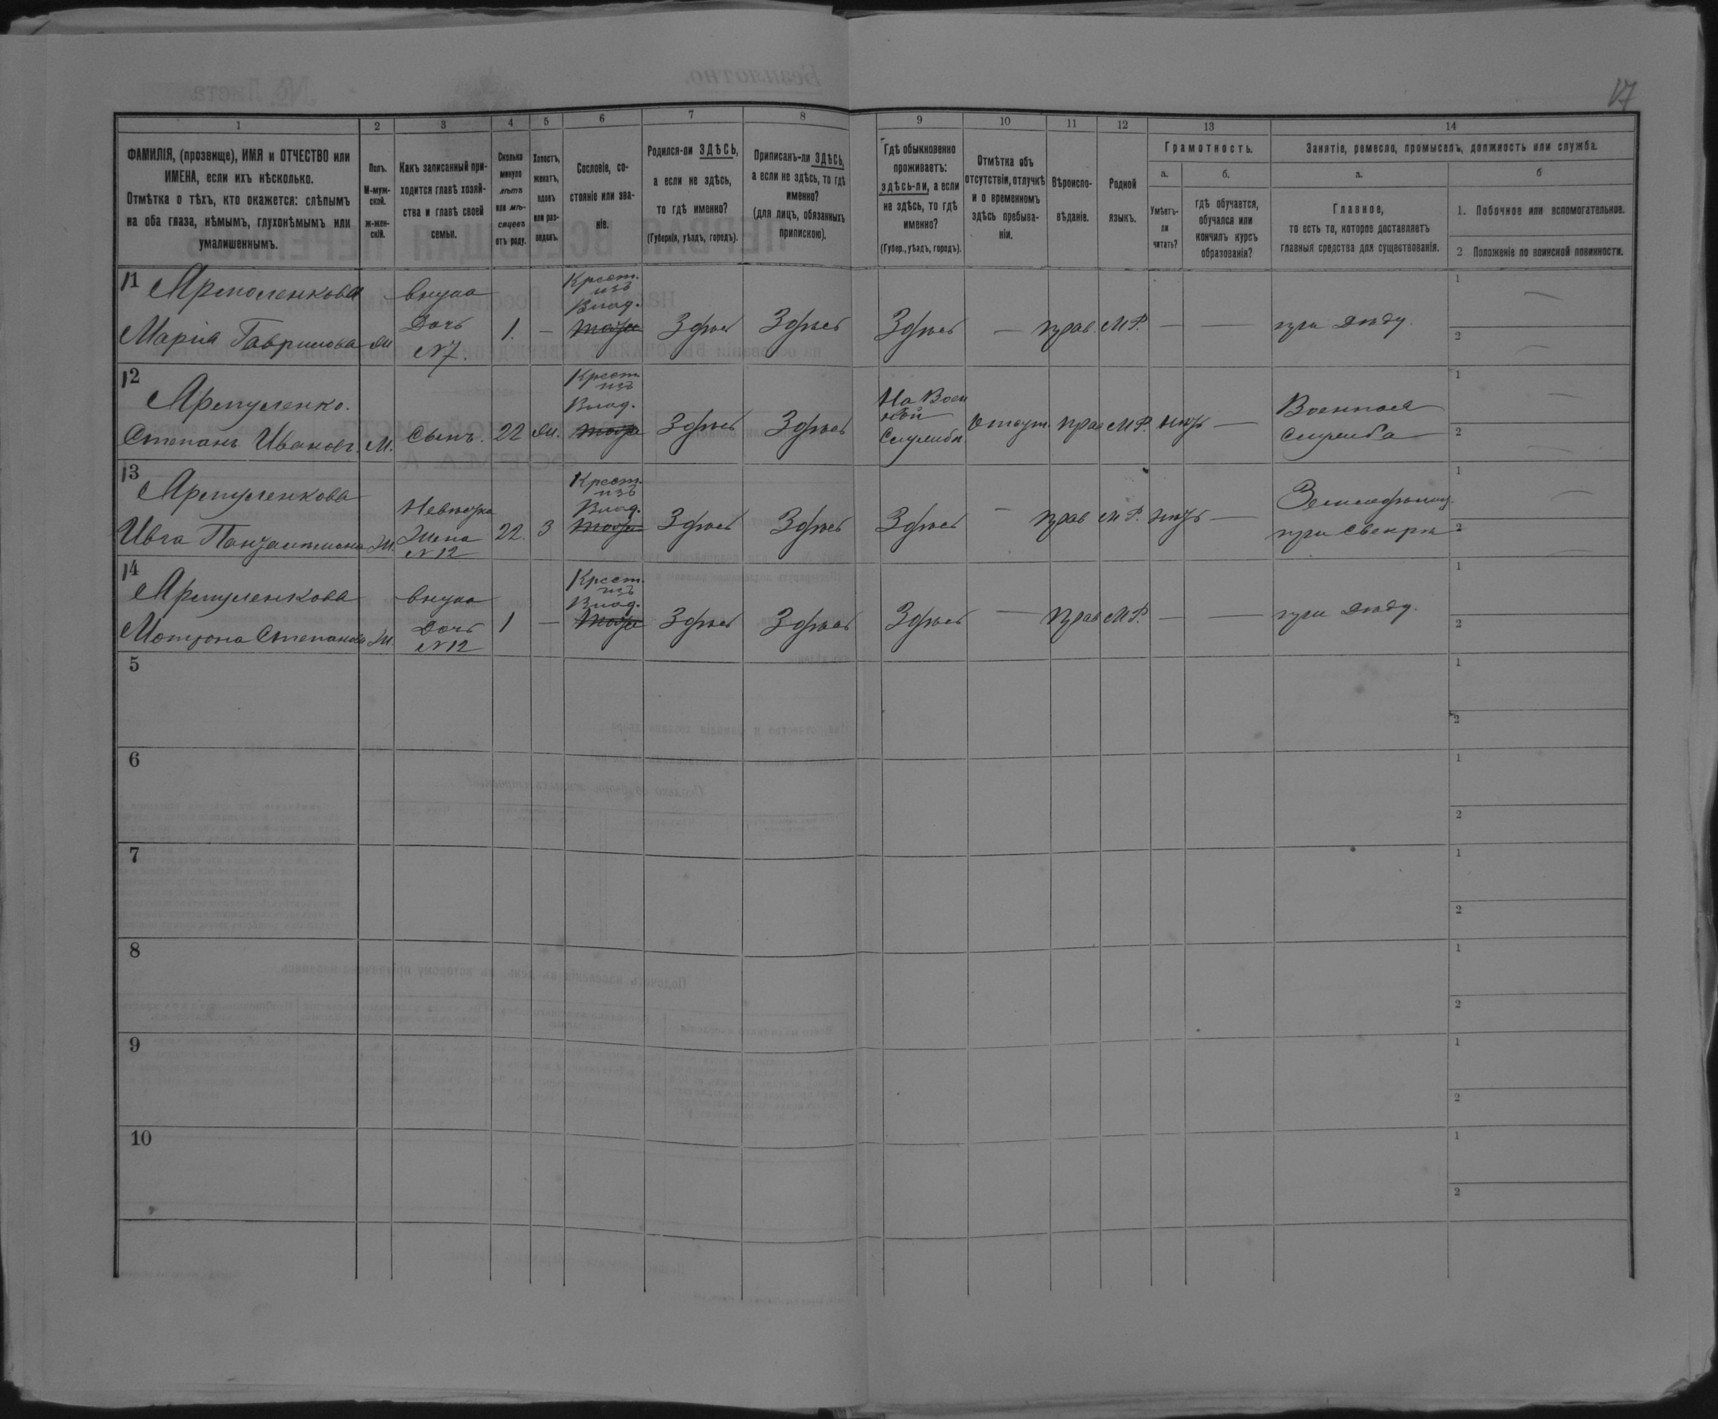 17
1
2
3
4
5
6
7
8
9
10
11
12
13
14
ФАМИЛІЯ, (прозвище), ИМЯ и ОТЧЕСТВО или
ИМЕНА, если ихъ нѣсколько.
Отмѣтка о тѣхъ, кто окажется: слѣпымъ
на оба глаза, нѣмымъ, глухонѣмымъ или
умалишеннымъ.
Полъ.
М-муж-
ской.
Ж-жен-
скій.
Какъ записанный при-
ходится главѣ хозяй-
ства и главѣ своей
семьи.
Сколько
минуло
лѣтъ
или мѣ-
сяцевъ
отъ роду.
Холостъ,
женатъ,
вдовъ
или раз-
веденъ.
Сословіе, со-
стояніе или зва-
ніе.
Родился-ли ЗДѢСЬ,
а если не здѣсь,
то гдѣ именно?
(Губернія, уѣздъ, городъ).
Приписанъ-ли ЗДѢСЬ,
а если не здѣсь, то гдѣ
именно?
(для лицъ, обязанныхъ
припискою).
Гдѣ обыкновенно
проживаетъ:
здѣсь-ли, а если
не здѣсь, то гдѣ
именно?
(Губер., уѣздъ, городъ).
Отмѣтка объ
отсутствіи, отлучкѣ
и о временномъ
здѣсь пребыва-
ніи.
Вѣроиспо-
вѣданіе.
Родной
языкъ.
Грамотность.
а.
Умѣетъ-
ли
читать?
б.
гдѣ обучается,
обучался или
кончилъ курсъ
образованія?
Занятіе, ремесло, промыселъ, должность или служба.
а.
Главное,
то есть то, которое доставляетъ
главныя средства для существованія.
б
1. Побочное или вспомогательное.
2 Положеніе по воинской повинности.
11
Марія Гаврилова
внука
Дочь
№7.
1. —
Крест.
изъ
Влад.
Здѣсь Здѣсь Здѣсь — прав М.Р. — — при дѣду
1
2
12
Степанъ Ивановъ. М. Сынъ. 22 ж.
Крест
изъ
Влад.
Здѣсь Здѣсь
На Воен
ной
Службѣ
Отсут. прав М.Р. нѣтъ —
Военная
служба
1
2
13
Ж.
Невѣстка
Жена
№12
22. З
Крест.
изъ
Влад.
Здѣсь Здѣсь Здѣсь — прав М.Р. нѣтъ —
при свекрѣ
1
2
14
Мотрона Степанова Ж.
внука
Дочь
№12
1 —
Крест.
изъ
Влад.
Здѣсь Здѣсь Здѣсь — прав М.Р. — — при дѣду.
1
2
5
1
2
6
1
2
7
1
2
8
1
2
9
1
2
10
1
2